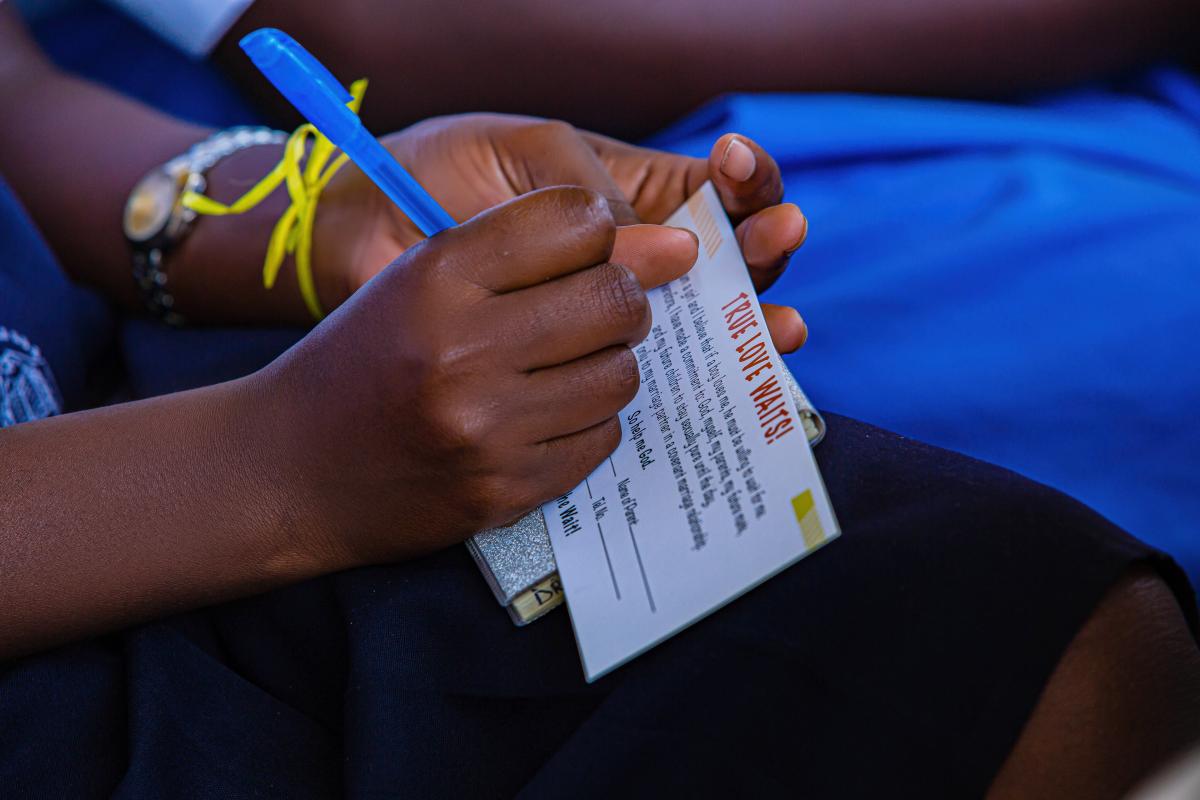 TRUE LOVE WAITS!
a girl and I believe that if a boy loves me, he must be willing to wait for me.
I have made a commitment to: God, myself, my parents, my future mate,
and my future children to stay sexually pure until the day,
only to my marriage partner in a covenant marriage relationship.
So help me God.
Name of Parent
Tel. No.
Wait!
DR